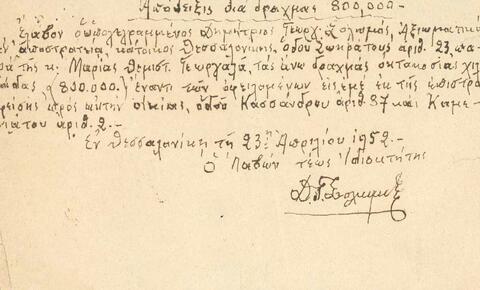 Απόδειξις διά δραχμάς 800,000.-
Έλαβον ο υπογεγραμμένος Δημήτριος Γεωργ. Σολωμός, Αξιωματικός
εν αποστρατεία, κάτοικος Θεσσαλονίκης, οδού Σωκράτους αριθ. 23, πα-
ρά της κ. Μαρίας Θεμιστ. Γεωργαλά, τας άνω δραχμάς οκτακοσίας χιλ
ιάδας (800.000.-) έναντι των οφειλομένων εις εμέ εκ της επιστρο
προς αυτήν οικίας, οδού Κασσάνδρου αριθ 87 και Καμε-
νιάτου αριθ. 2.-
Εν Θεσσαλονίκη τη 23η Απριλίου 1952.-
Ο Λαβών τέως Ιδιοκτήτης